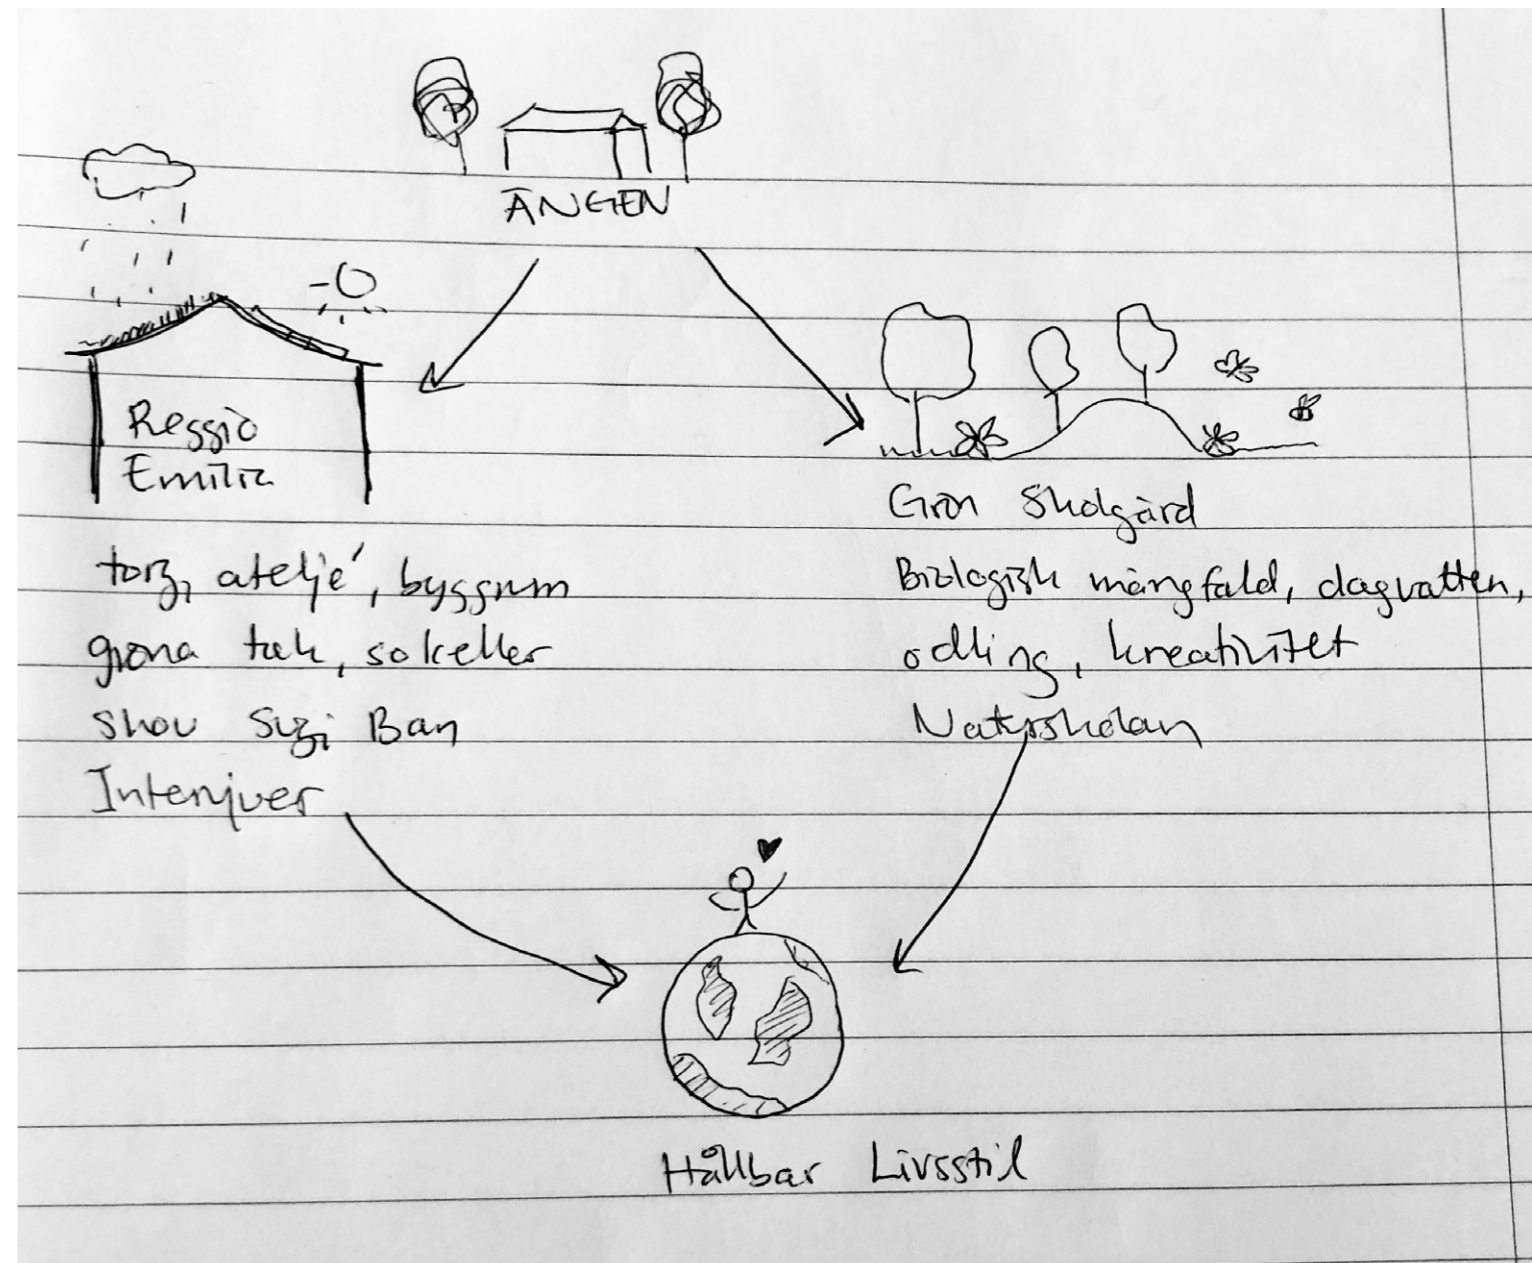 ÄNGEN
Reggio
Emilia
torg, ateljé, byggrum
gröna tak, solceller
Shou Sugi Ban
Intervjuer
Grön Skolgård
Biologisk mångfald, dagvatten,
odling, kreativitet
Naturskolan
Hållbar Livsstil